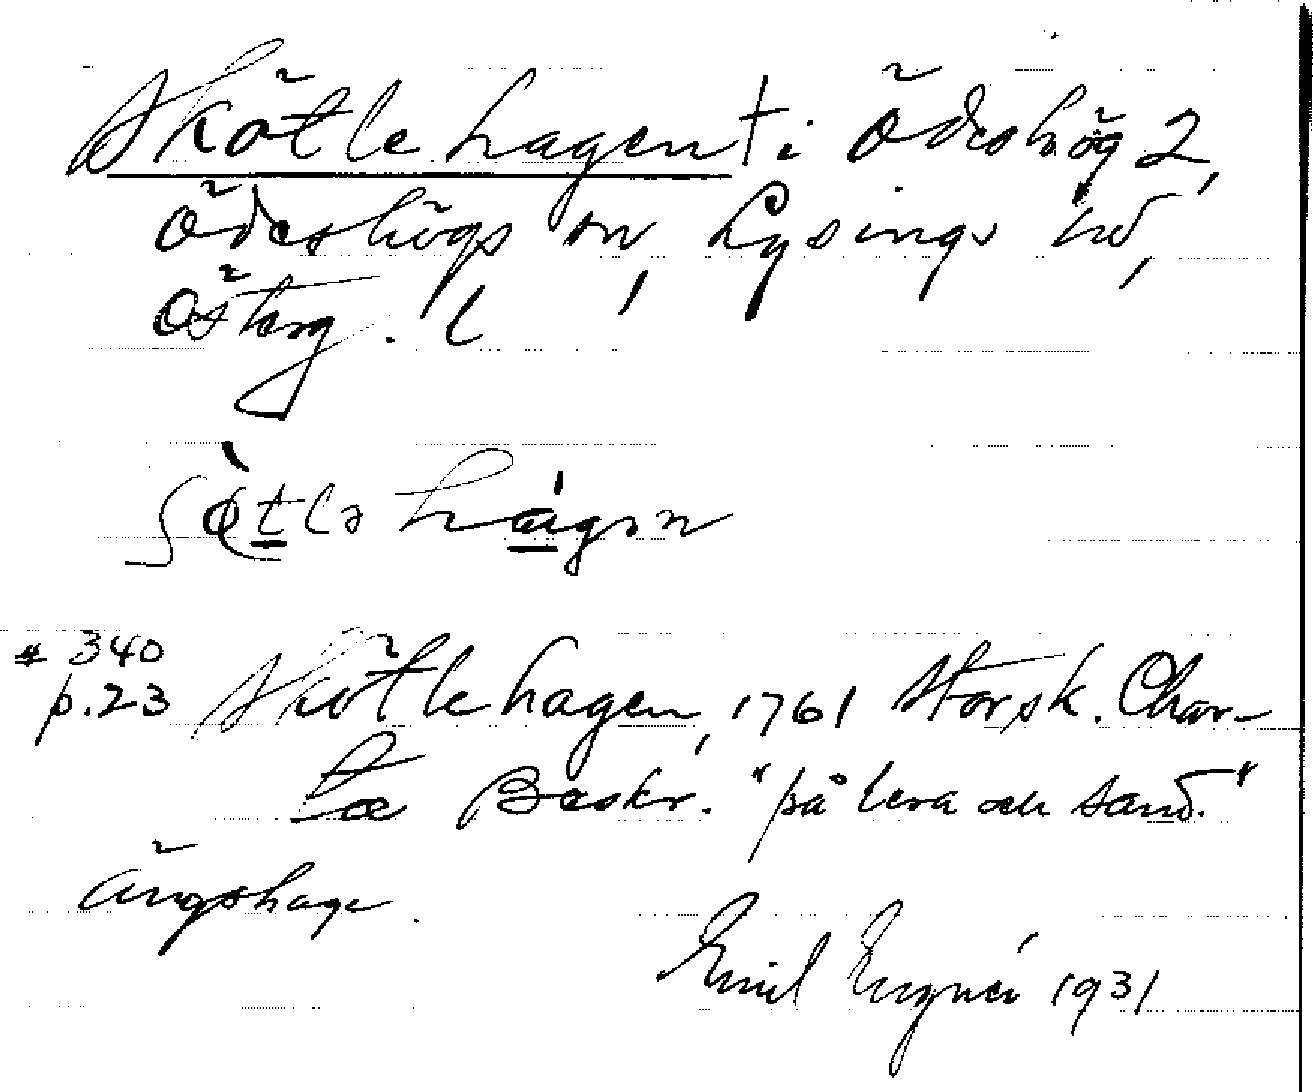 Skötlehagen † i Ödeshög 2,
Ödeshögs sn, Lysings hd,
Österg. l
* 340
p. 23 Skötlehagen, 1761 Storsk. Char-
tæ Beskr. "på lera och sand."
Ängshage.
Emil 1931